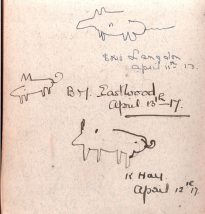 Langdon
April 11th 13.
B M. Eastwood
April 13th -17.
K Hay
April 12th 17